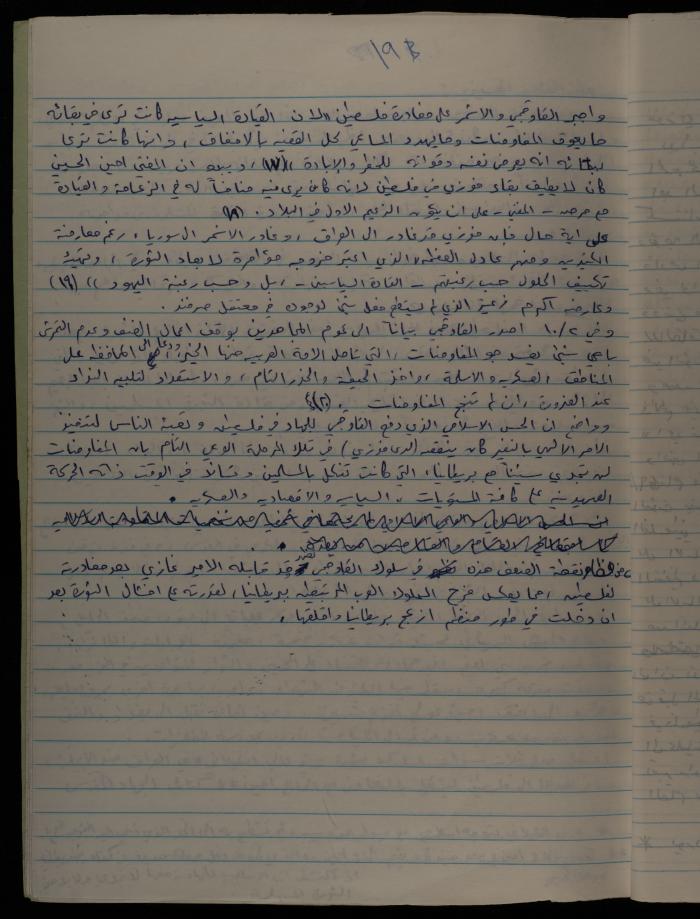 19 B
واجبر القاوقجي والاشمر على مغادرة فلسطين "لان القيادة السياسية كانت ترى في بقائه
ما يعوق المفاوضات وما يهدد المساعي لحل القضية بالاخفاق، وانها كانت ترى
انه يعرض نفسه وقواته للخطر والإبادة" (١٧)، ويبدو ان المفتي امين الحسيني
كان لا يطيق بقاء فوزي في فلسطين لانه كان يرى فيه منافساً له في الزعامة والقيادة
مع حرصه - المفتي - على ان يكون الزعيم الاول في البلاد. (١٨)
على اية حال فإن فوزي قد غادر الى العراق، وغادر الاشمر الى سوريا، رغم معارضة
الكثيرين ومنهم عادل العظمة الذي اعتبر خروجه مؤامرة لابعاد الثورة، وتهيئة
تكييف الحلول حسب رغبتهم - القادة السياسيين - "بل وحسب رغبة اليهود" (١٩)
وعارضه اكرم زعيتر الذي لم يستطع فعل شيء لوجوده في معتقل صرفند.
وفي ١٠/٢ اصدر القاوقجي بياناً الى عموم المجاهدين بوقف اعمال العنف وعدم التحرش
باي شيء يفسد جو المفاوضات، التي تأمل الامة العربية منها الخير، ودعا الى المحافظة على
المناطق العسكرية والاسلحة، واخذ الحيطة والحذر التام، والاستعداد لتلبية النداء
عند الضرورة، ان لم تنجح المفاوضات.
وواضح ان الحس الاسلامي الذي دفع القاوقجي للجهاد في فلسطين وتعبئة الناس لتنفيذ
الامر الالهي بالنفير كان ينقصه (لدى فوزي) في تلك المرحلة الوعي التام بان المفاوضات
لن تجدي شيئاً مع بريطانيا، التي كانت تنكل بالمسلمين وتساند في الوقت ذاته الحركة
الصهيونية على كافة المستويات، السياسية والاقتصادية والعسكرية.
نقطة الضعف هذه في سلوك القاوقجي فقد قابله الامير غازي بعد مغادرته
لفلسطين، مما يعكس فرح الملوك العرب بريطانيا، لقدرته على افشال الثورة بعد
ان دخلت في طور منظم ازعج بريطانيا واقلقها.